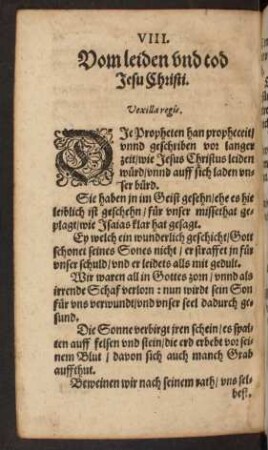 VIII.
Vom leiden vnd tod
Jesu Christi.
Vexilla regis.
DIe Propheten han propheceit/
vnnd geschriben vor langer
zeit/wie Jesus Christus leiden
würd/vnnd auff sich laden vns
ser bürd.
Sie haben jn im Geist gesehn/ehe es hie
leiblich ist geschehn/für vnser missethat ge-
plagt/wie Isaias klar hat gesagt.
Ey welch ein wunderlich geschicht/Gott
schonet seines Sones nicht/er straffet jn für
vnser schuld/vnd er leidets alls mit gedult.
Wir waren all in Gottes zorn/vnnd als
irrende Schaf verlorn: nun wirdt sein Son
für vns verwundt/vnd vnser seel dadurch ge-
sund.
Die Sonne verbirgt jren schein/es spal-
ten auff felsen vnd stein/die erd erbebt vor sei-
nem Blut/davon sich auch manch Grab
auffthut.
Beweinen wir nach seinem rath/vns sel-
best.